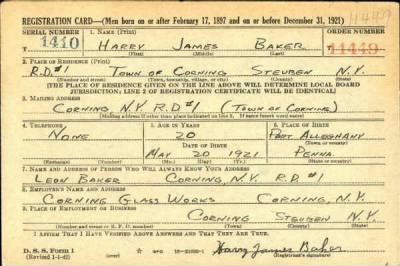 11449
REGISTRATION CARD—(Men born on or after February 17, 1897 and on or before December 31, 1921)
SERIAL NUMBER 1. NAME (Print) ORDER NUMBER
1410 HARRY JAMES BAKER 11449
(First) (Middle) (Last)
2. PLACE OF RESIDENCE (Print)
R.D.#1 TOWN OF CORNING STEUBEN N.Y.
(Number and street) (Town, township, village, or city) (County) (State)
[THE PLACE OF RESIDENCE GIVEN ON THE LINE ABOVE WILL DETERMINE LOCAL BOARD
JURISDICTION; LINE 2 OF REGISTRATION CERTIFICATE WILL BE IDENTICAL]
3. MAILING ADDRESS
CORNING N.Y. R.D #1 (TOWN OF CORNING)
[Mailing address if other than place indicated on line 2. If same insert word same]
4. TELEPHONE 5. AGE IN YEARS 6. PLACE OF BIRTH
NONE 20 PORT ALLEGHANY
DATE OF BIRTH (Town or county)
MAY 20 1921 PENNA.
(Exchange) (Number) (Mo.) (Day) (Yr.) (State or country)
7. NAME AND ADDRESS OF PERSON WHO WILL ALWAYS KNOW YOUR ADDRESS
LEON BAKER CORNING, N.Y. R.D. #1
8. EMPLOYER'S NAME AND ADDRESS
CORNING GLASS WORKS CORNING, N.Y.
9. PLACE OF EMPLOYMENT OR BUSINESS
CORNING STEUBEN N.Y.
(Number and street or R. F. D. number) (Town) (County) (State)
I AFFIRM THAT I HAVE VERIFIED ABOVE ANSWERS AND THAT THEY ARE TRUE.
D. S. S. Form 1 Harry James Baker
(Revised 1-1-42) GPO (Registrant's signature)